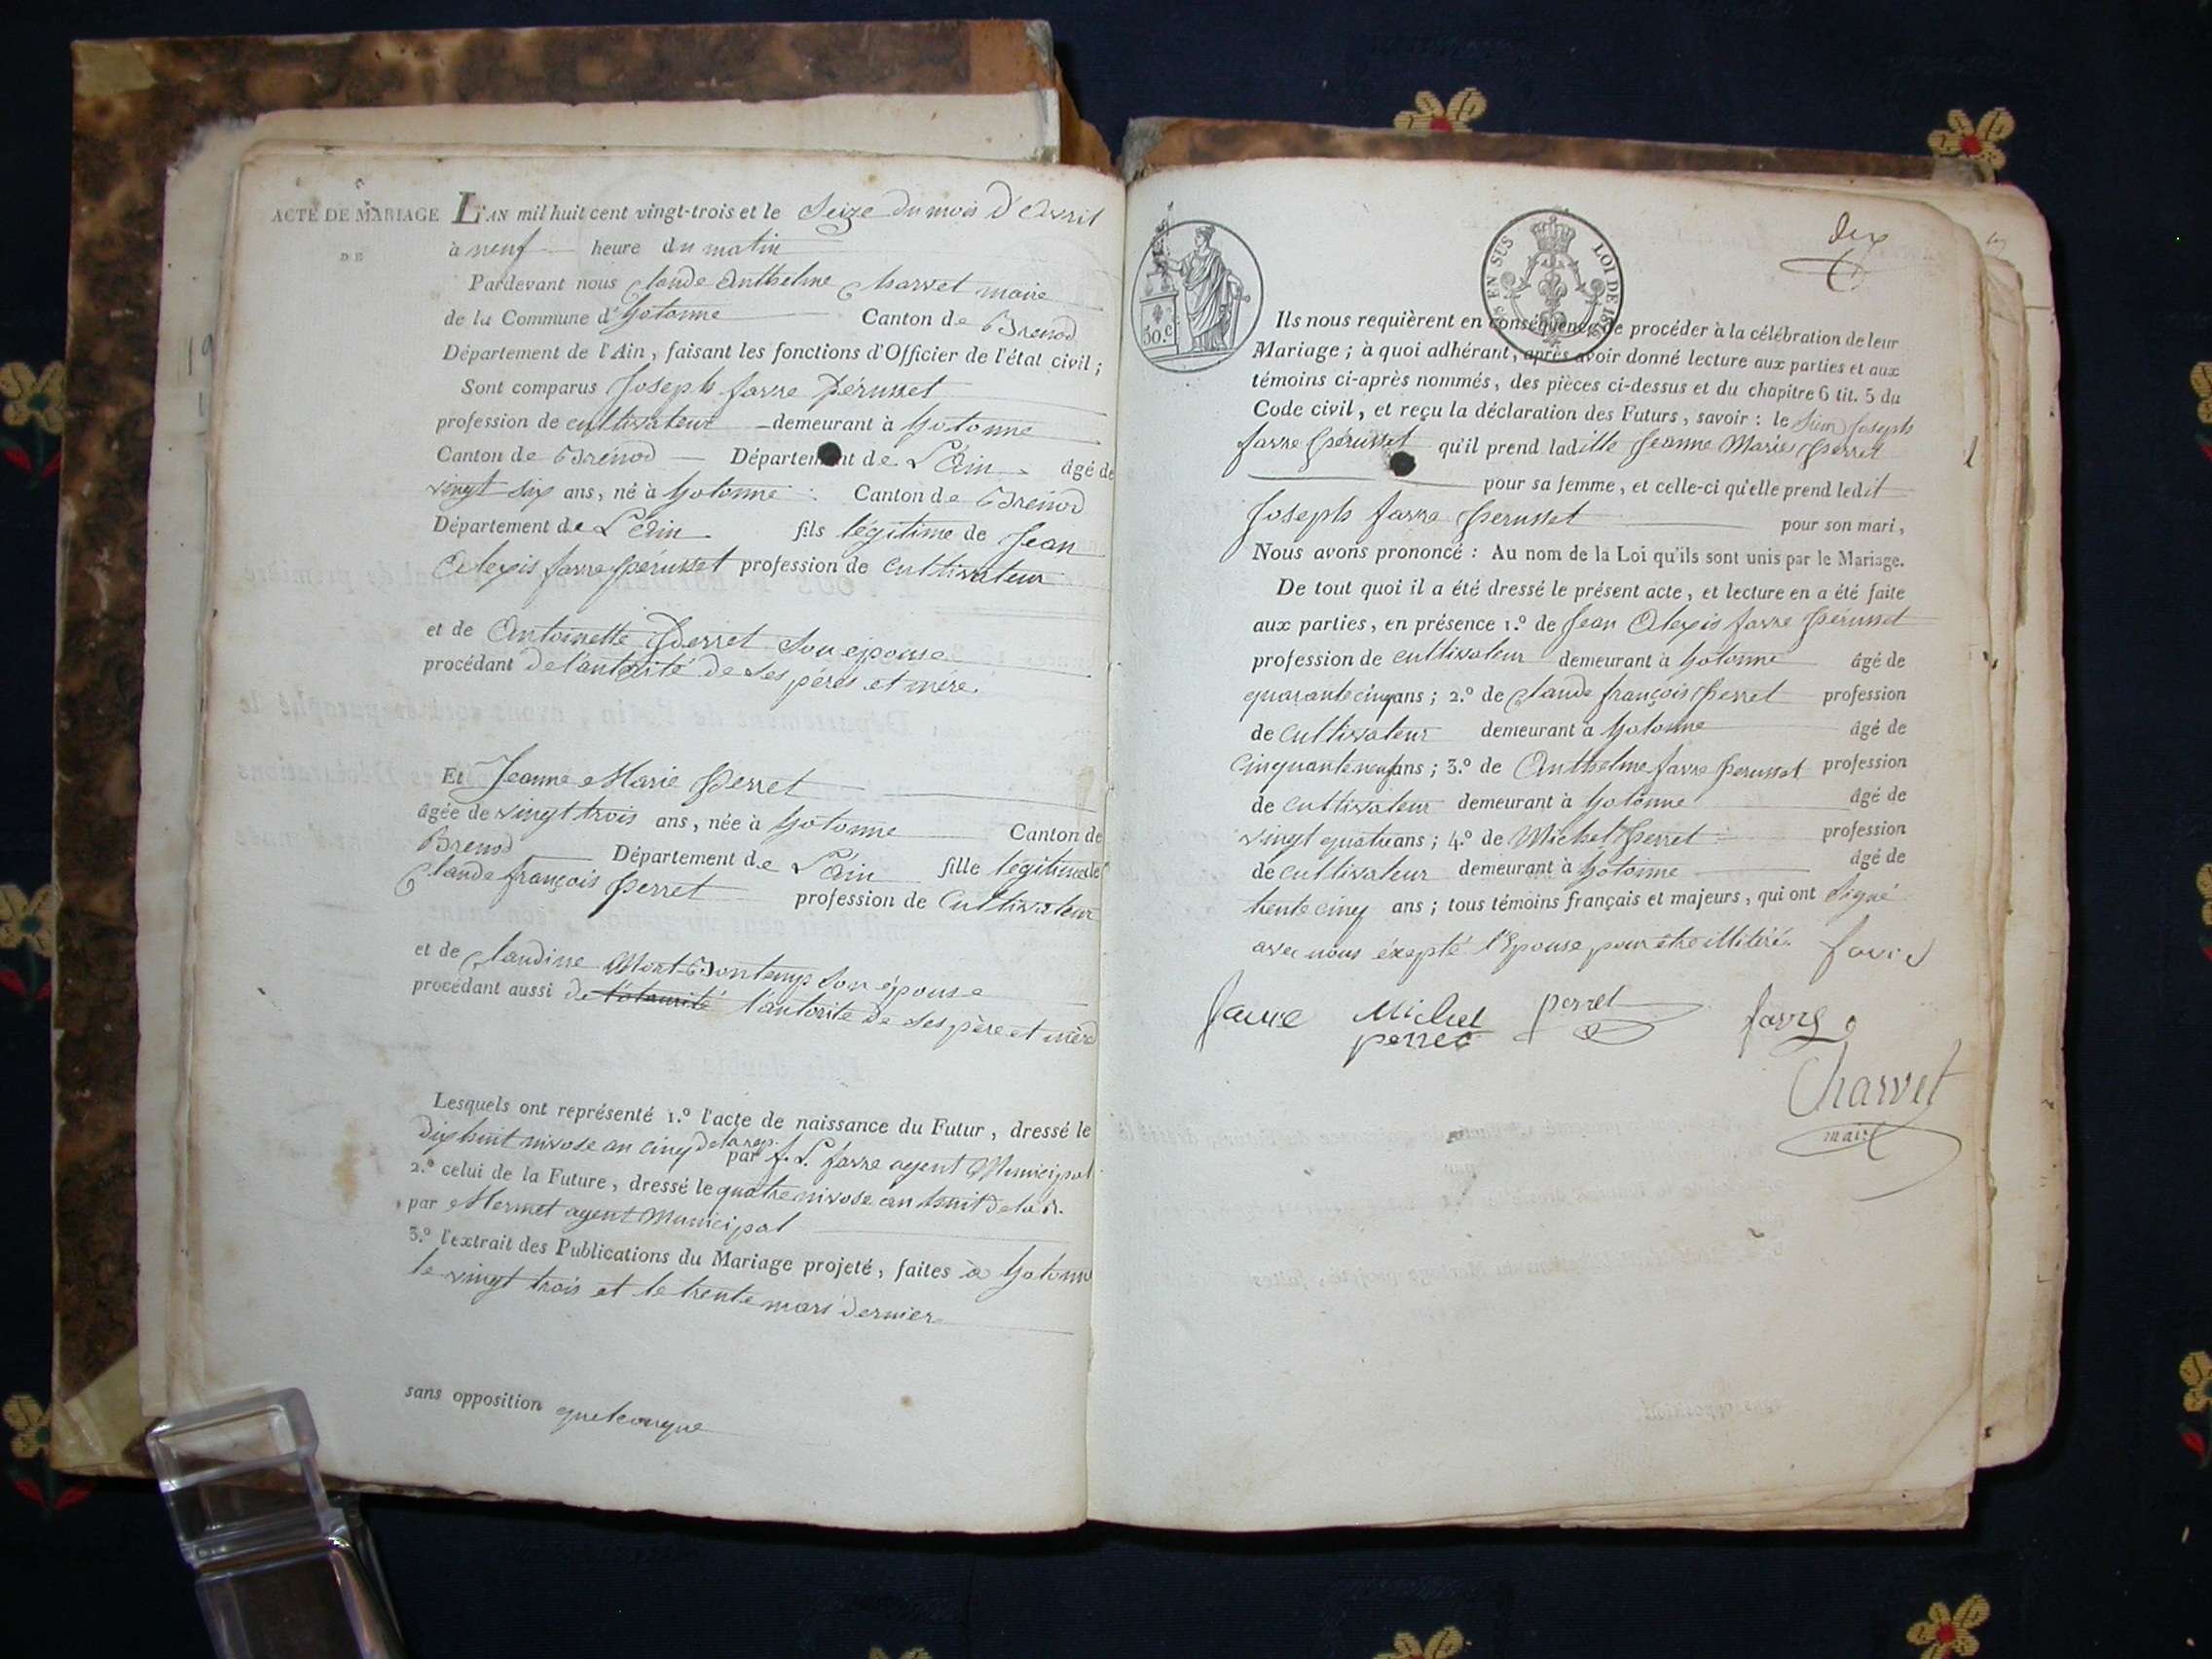 ACTE DE MARIAGE L'AN mil huit cent vingt-trois et le Seize du mois d'Avril
DE
à neuf heure du matin
Pardevant nous Claude Anthelme Charvet maire
de la Commune d'hotonne Canton de Brenod
Département de l'Ain, faisant les fonctions d'Officier de l'état civil;
Sont comparus Joseph favre Pérusset
profession de cultivateur demeurant à hotonne
Canton de Brénod Département de L'Ain âgé de
vingt six ans, né à hotonne Canton de Brénod
Département de L'Ain fils légitime de Jean
Alexis favre pérusset profession de cultivateur
et de Antoinette Perret Son épouse
procédant de l'autorité de ses pères et mère.
Et Jeanne Marie Perret
âgée de vingt trois ans, née à hotonne Canton de
Brenod Département de L'Ain fille légitime de
Claude françois perret profession de Cultivateur
et de Claudine Mont-Bontemps son épouse
procédant aussi de l'autorité de ses père et mère
Lesquels ont représenté 1.º l'acte de naissance du Futur, dressé le
dix huit nivose an cinq de la rep. par f. L. favre agent Municipal
2.º celui de la Future, dressé le quatre nivose an huit de la R.
par Mermet agent Municipal
3.º l'extrait des Publications du Mariage projeté, faites à hotonne
le vingt trois et le trente mars dernier
sans opposition quelconque
dix
50.c
EN SUS LOI DE 18
Ils nous requièrent en conséquence de procéder à la célébration de leur
Mariage; à quoi adhérant, après avoir donné lecture aux parties et aux
témoins ci-après nommés, des pièces ci-dessus et du chapitre 6 tit. 5 du
Code civil, et reçu la déclaration des Futurs, savoir: le Sieur Joseph
favre pérusset qu'il prend laditte Jeanne Marie perret
pour sa femme, et celle-ci qu'elle prend ledit
Joseph favre perusset pour son mari,
Nous avons prononcé: Au nom de la Loi qu'ils sont unis par le Mariage.
De tout quoi il a été dressé le présent acte, et lecture en a été faite
aux parties, en présence 1.º de Jean Alexis favre pérusset
profession de cultivateur demeurant à hotonne âgé de
quarante cinq ans; 2.º de Claude françois perret profession
de cultivateur demeurant à hotonne âgé de
cinquante neuf ans; 3.º de Anthelme favre perusset profession
de cultivateur demeurant à hotonne âgé de
vingt quatre ans; 4.º de Michel perret profession
de cultivateur demeurant à hotonne âgé de
trente cinq ans; tous témoins français et majeurs, qui ont signé
avec nous éxepté l'Epouse pour être illitéré. favre
favre Michel perret favre
perret
Charvet
maire